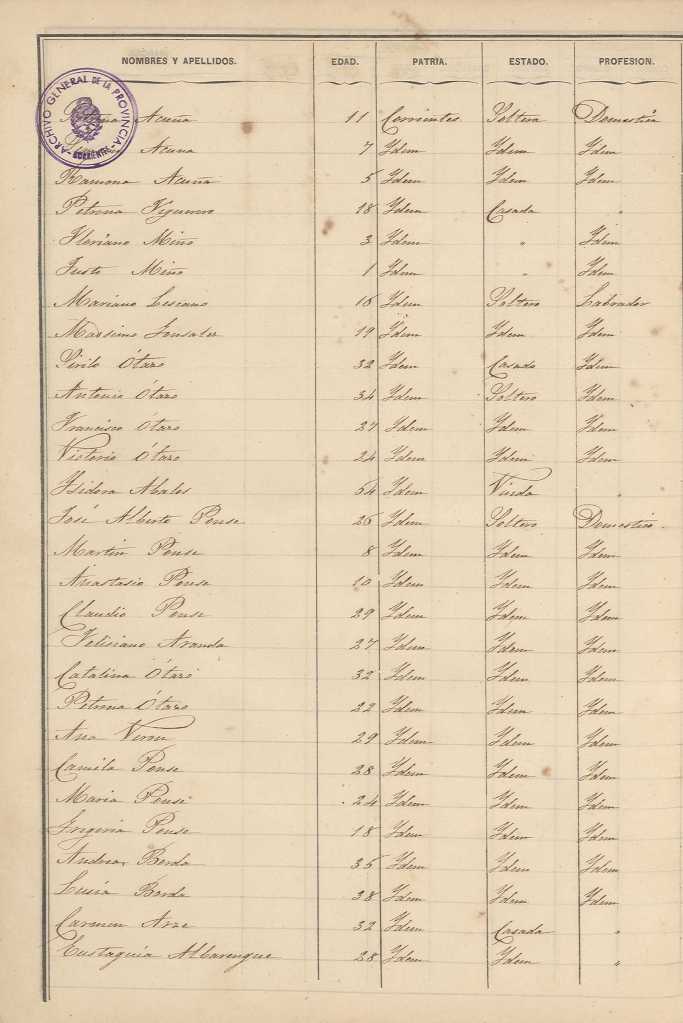 NOMBRES Y APELLIDOS. EDAD. PATRIA. ESTADO. PROFESION.
ARCHIVO GENERAL DE LA PROVINCIA CORRIENTES
Acuña 11 Corrientes Soltera Domestica
Acuna 7 Ydem Ydem Ydem
Ramona Acuña 5 Ydem Ydem Ydem
Petrona Figueroa 18 Ydem Casada "
Floriano Miño 3 Ydem " Ydem
Justo Miño 1 Ydem " Ydem
Mariano Lescano 16 Ydem Soltero Labrador
Macsimo Gonsalez 19 Ydem Ydem Ydem
Sirilo Ótaso 32 Ydem Casado Ydem
Antonio Ótaso 34 Ydem Soltero Ydem
Francisco Ótaso 27 Ydem Ydem Ydem
Victorio Ótaso 24 Ydem Ydem Ydem
Ysidora Abalos 54 Ydem Viuda "
José Alberto Pense 26 Ydem Soltero Domestico
Martin Pense 8 Ydem Ydem Ydem
Anastasio Pense 10 Ydem Ydem Ydem
Claudio Pense 29 Ydem Ydem Ydem
Felisiano Aranda 27 Ydem Ydem Ydem
Catalina Ótaso 32 Ydem Ydem Ydem
Petrona Ótaso 22 Ydem Ydem Ydem
Ana 29 Ydem Ydem Ydem
Camila Pense 28 Ydem Ydem Ydem
Maria Pense 24 Ydem Ydem Ydem
Pense 18 Ydem Ydem Ydem
Andrea Borda 35 Ydem Ydem Ydem
Lusia Borda 38 Ydem Ydem Ydem
Carmen Arze 32 Ydem Casada "
Eustaquia Albarengue 28 Ydem Ydem "